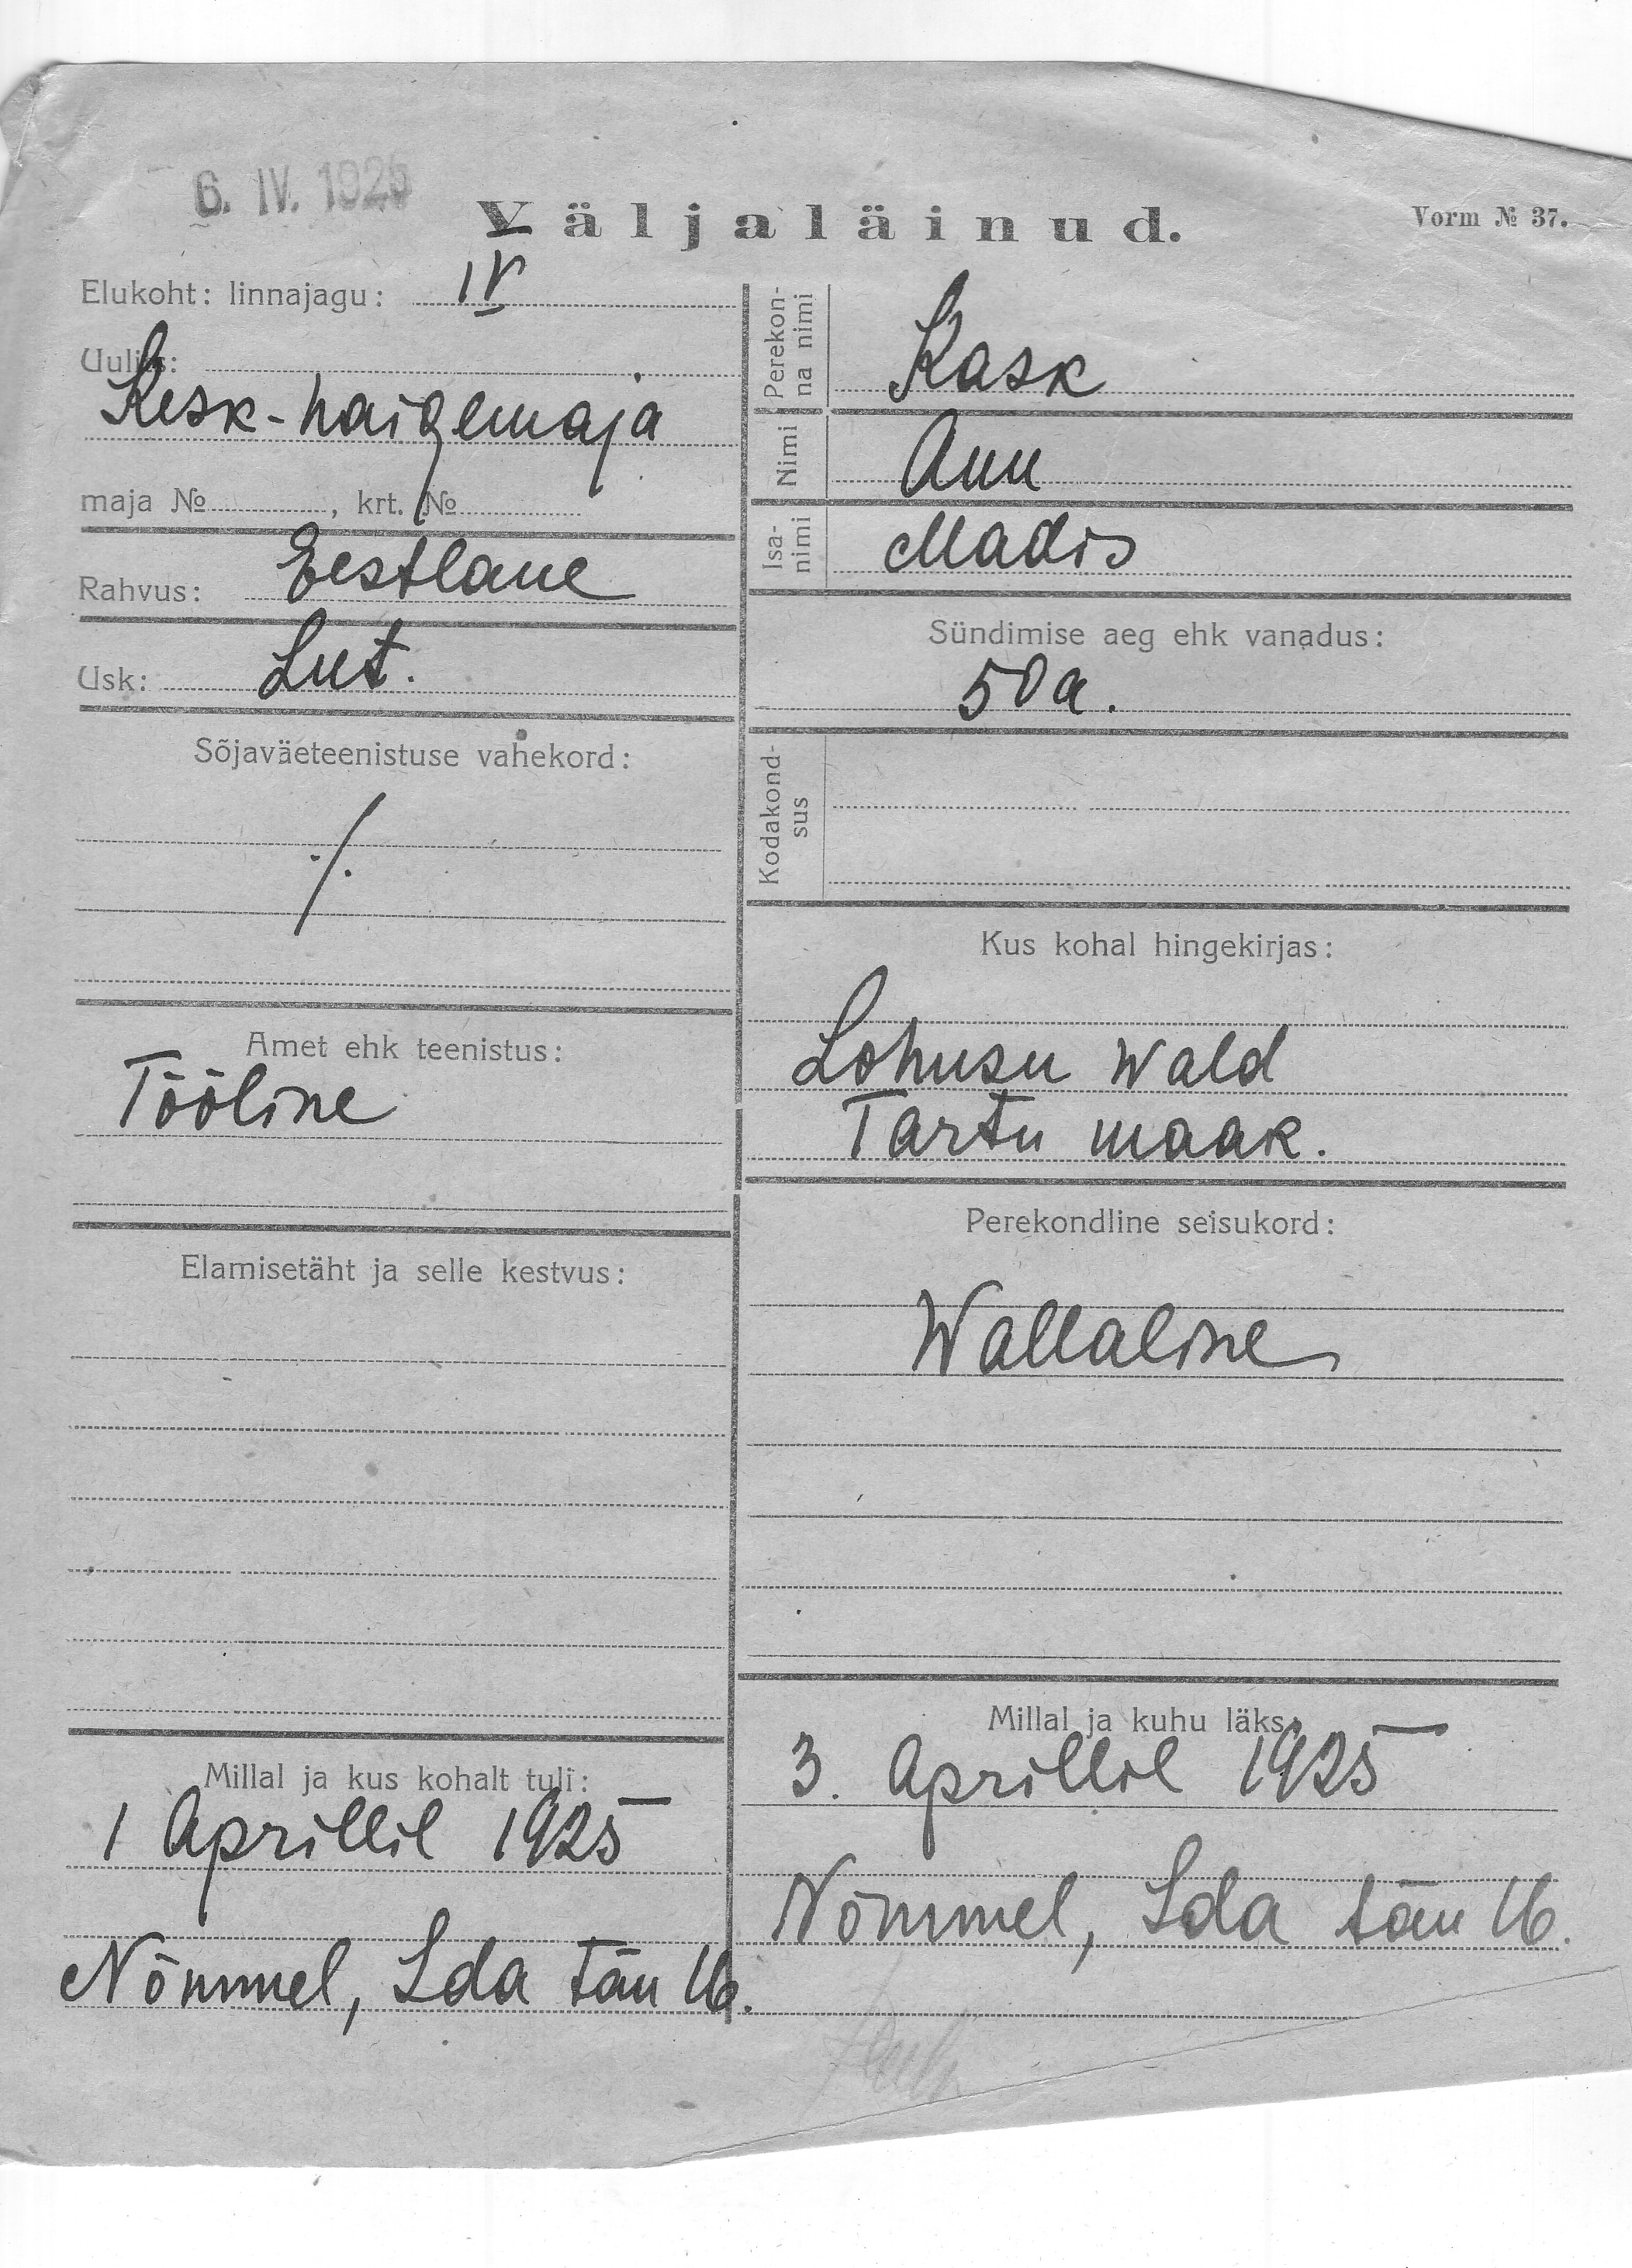 6. IV. 1925
Väljaläinud.
Vorm № 37.
Elukoht: linnajagu: IV
Uulits:
Kesk-haigemaja
maja № , krt. №
Rahvus: Eestlane
Usk: Lut.
Sõjaväeteenistuse vahekord:
./.
Amet ehk teenistus:
Tööline
Elamisetäht ja selle kestvus:
Millal ja kus kohalt tuli:
1 Aprillil 1925
Nõmmel, Lda tän 16.
Perekon-
na nimi
Kask
Nimi
Ann
Isa-
nimi
Madis
Sündimise aeg ehk vanadus:
50 a.
Kodakond-
sus
Kus kohal hingekirjas:
Lohusu wald
Tartu maak.
Perekondline seisukord:
Wallaline
Millal ja kuhu läks:
3. Aprillil 1925
Nõmmel, Lda tän 16.